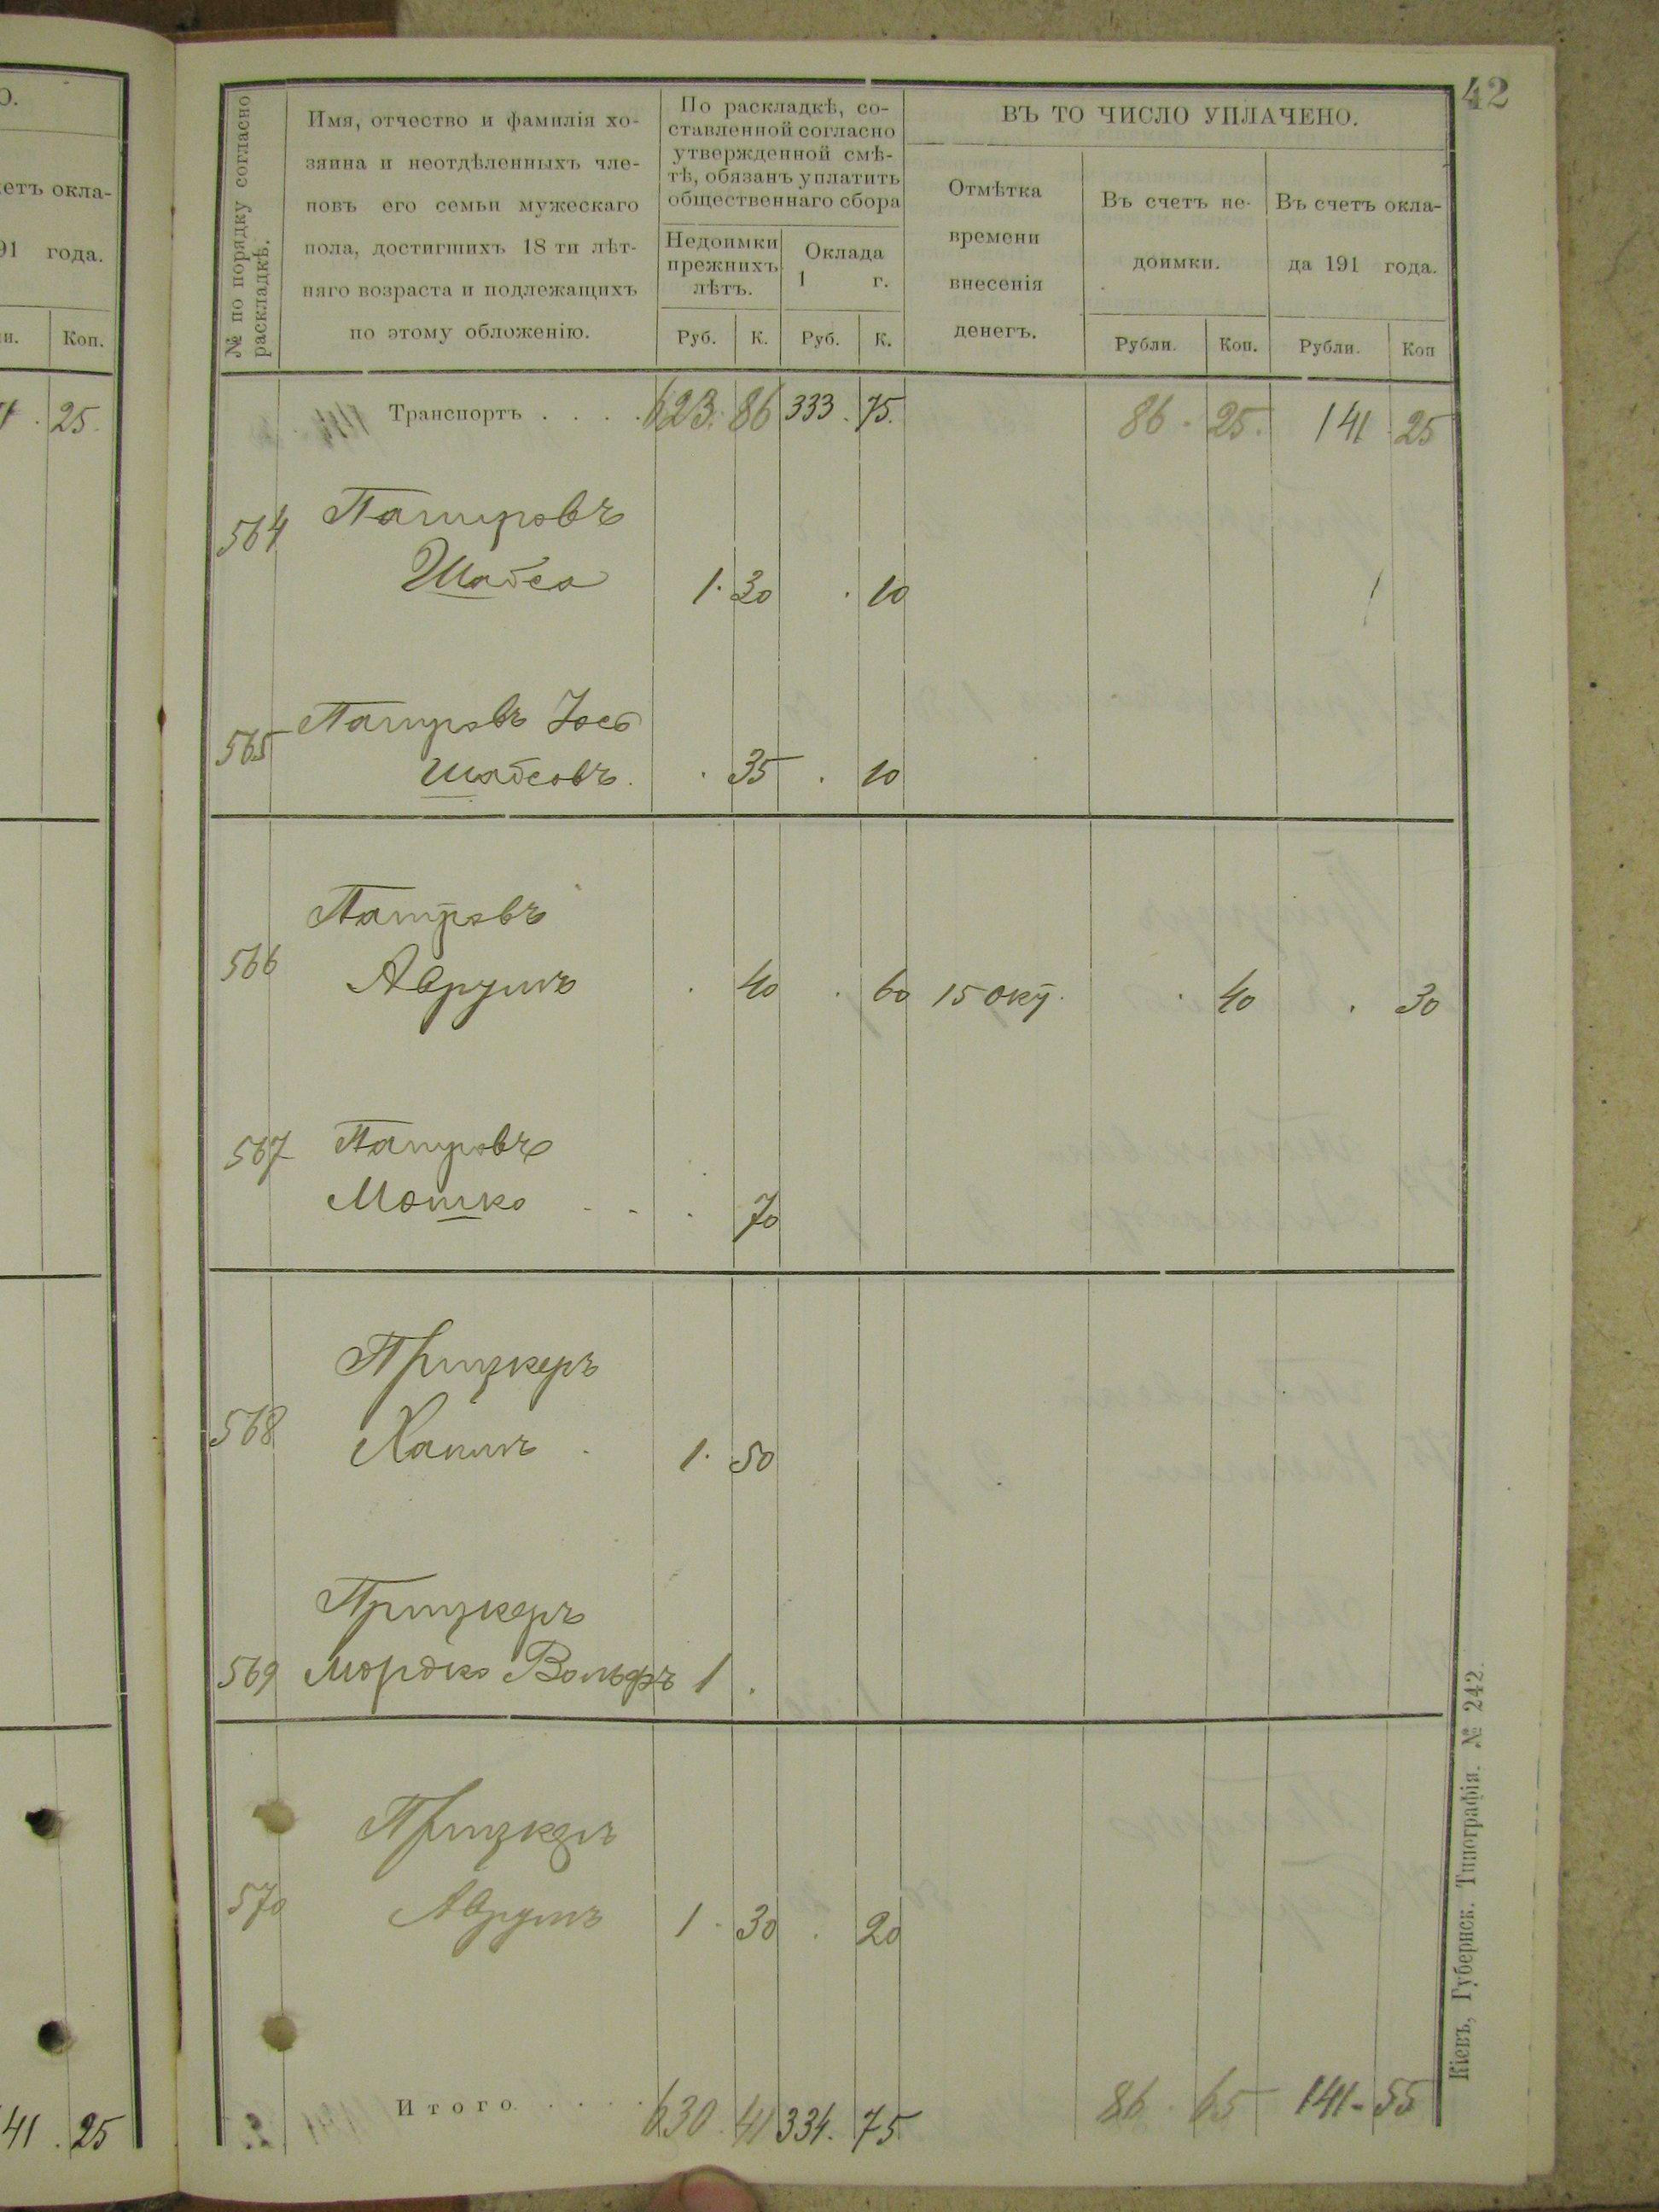 О.
етъ окла-
91 года.
Коп.
25.
41 . 25
42
№ по порядку согласно
раскладкѣ.
Имя, отчество и фамилія хо-
зяина и неотдѣленныхъ чле-
новъ его семьи мужескаго
пола, достигшихъ 18 ти лѣт-
няго возраста и подлежащихъ
по этому обложенію.
По раскладкѣ, со-
ставленной согласно
утвержденной смѣ-
тѣ, обязанъ уплатить
общественнаго сбора
Недоимки
прежнихъ
лѣтъ.
Оклада
1 г.
Руб. К. Руб. К.
ВЪ ТО ЧИСЛО УПЛАЧЕНО.
Отмѣтка
времени
внесенія
денегъ.
Въ счетъ не-
доимки.
Въ счетъ окла-
да 191 года.
Рубли. Коп. Рубли. Коп
Транспортъ . . . . 623. 86 333. 75. 86 . 25. 141 . 25
564 Патировъ
Шабса 1. 30 . 10
565 Патировъ Іось
Шабсовъ. . 35 . 10
566 Патировъ
Аврумъ . 40 . 60 15 окт. . 40 . 30
567 Патировъ
Мошко . . . 70
568 Прицкеръ
Хаимъ . 1. 50
569 Прицкеръ
Мордко Вольфъ 1 .
570 Прицкеръ
Аврумъ 1 . 30 . 20
Итого . . . . 630. 41 334. 75 86 . 65 141 - 55
Кіевъ, Губернск. Типографія. № 242.